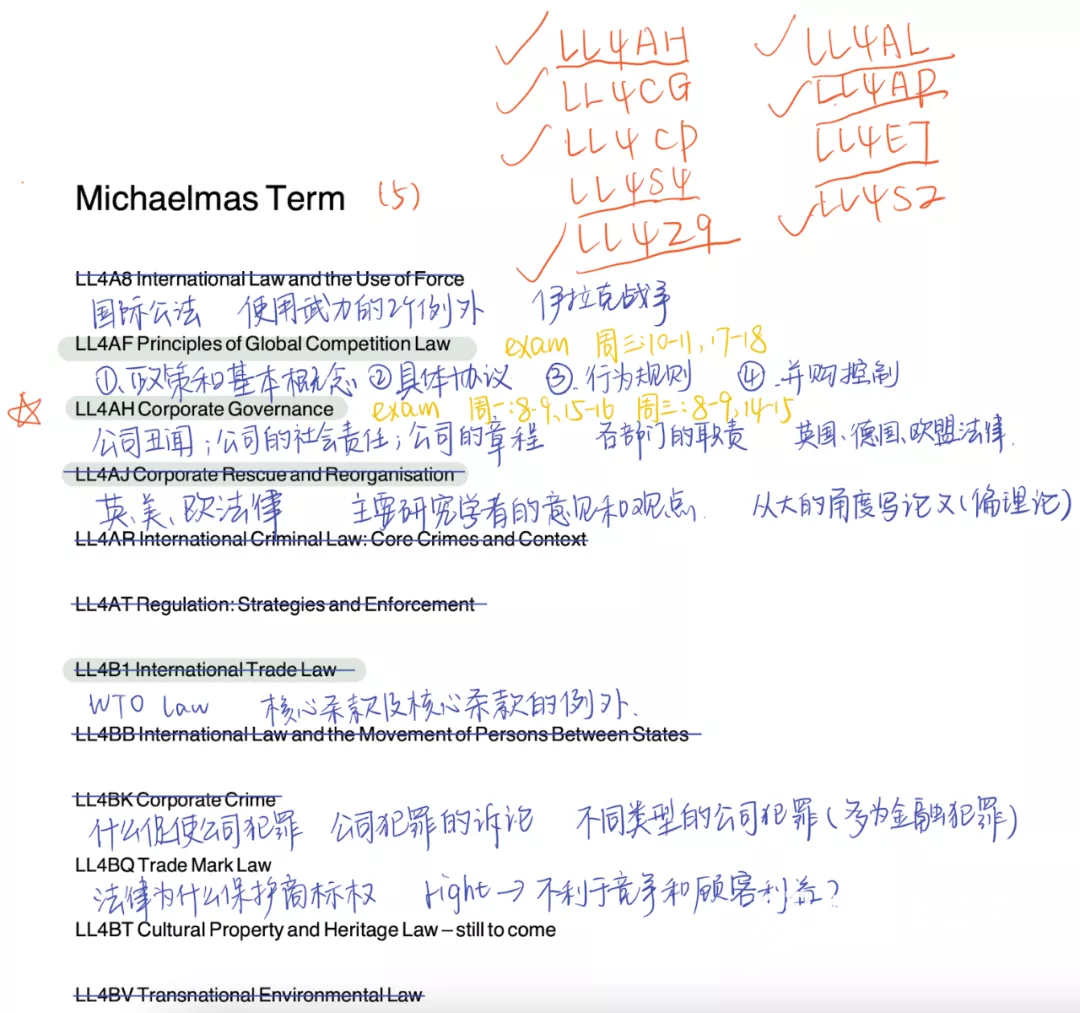 LL4AH LL4AL
LL4CG LL4AP
LL4CP LL4E7
LL4S4 LL4S2
LL4Z9
Michaelmas Term (5)
LL4A8 International Law and the Use of Force
国际公法 使用武力的2个例外 伊拉克战争
LL4AF Principles of Global Competition Law exam 周三:10-11,17-18
①.政策和基本概念 ②具体协议 ③.行为规则 ④.并购控制
LL4AH Corporate Governance exam 周一:8-9,15-16 周三:8-9,14-15
公司丑闻;公司的社会责任;公司的章程 各部门的职责 英国、德国、欧盟法律.
LL4AJ Corporate Rescue and Reorganisation
英、美、欧法律 主要研究学者的意见和观点. 从大的角度写论文(偏理论)
LL4AR International Criminal Law: Core Crimes and Context
LL4AT Regulation: Strategies and Enforcement
LL4B1 International Trade Law
WTO law 核心条款及核心条款的例外.
LL4BB International Law and the Movement of Persons Between States
LL4BK Corporate Crime
什么促使公司犯罪 公司犯罪的诉讼 不同类型的公司犯罪(多为金融犯罪)
LL4BQ Trade Mark Law
法律为什么保护商标权 right→不利于竞争和顾客利益?
LL4BT Cultural Property and Heritage Law – still to come
LL4BV Transnational Environmental Law